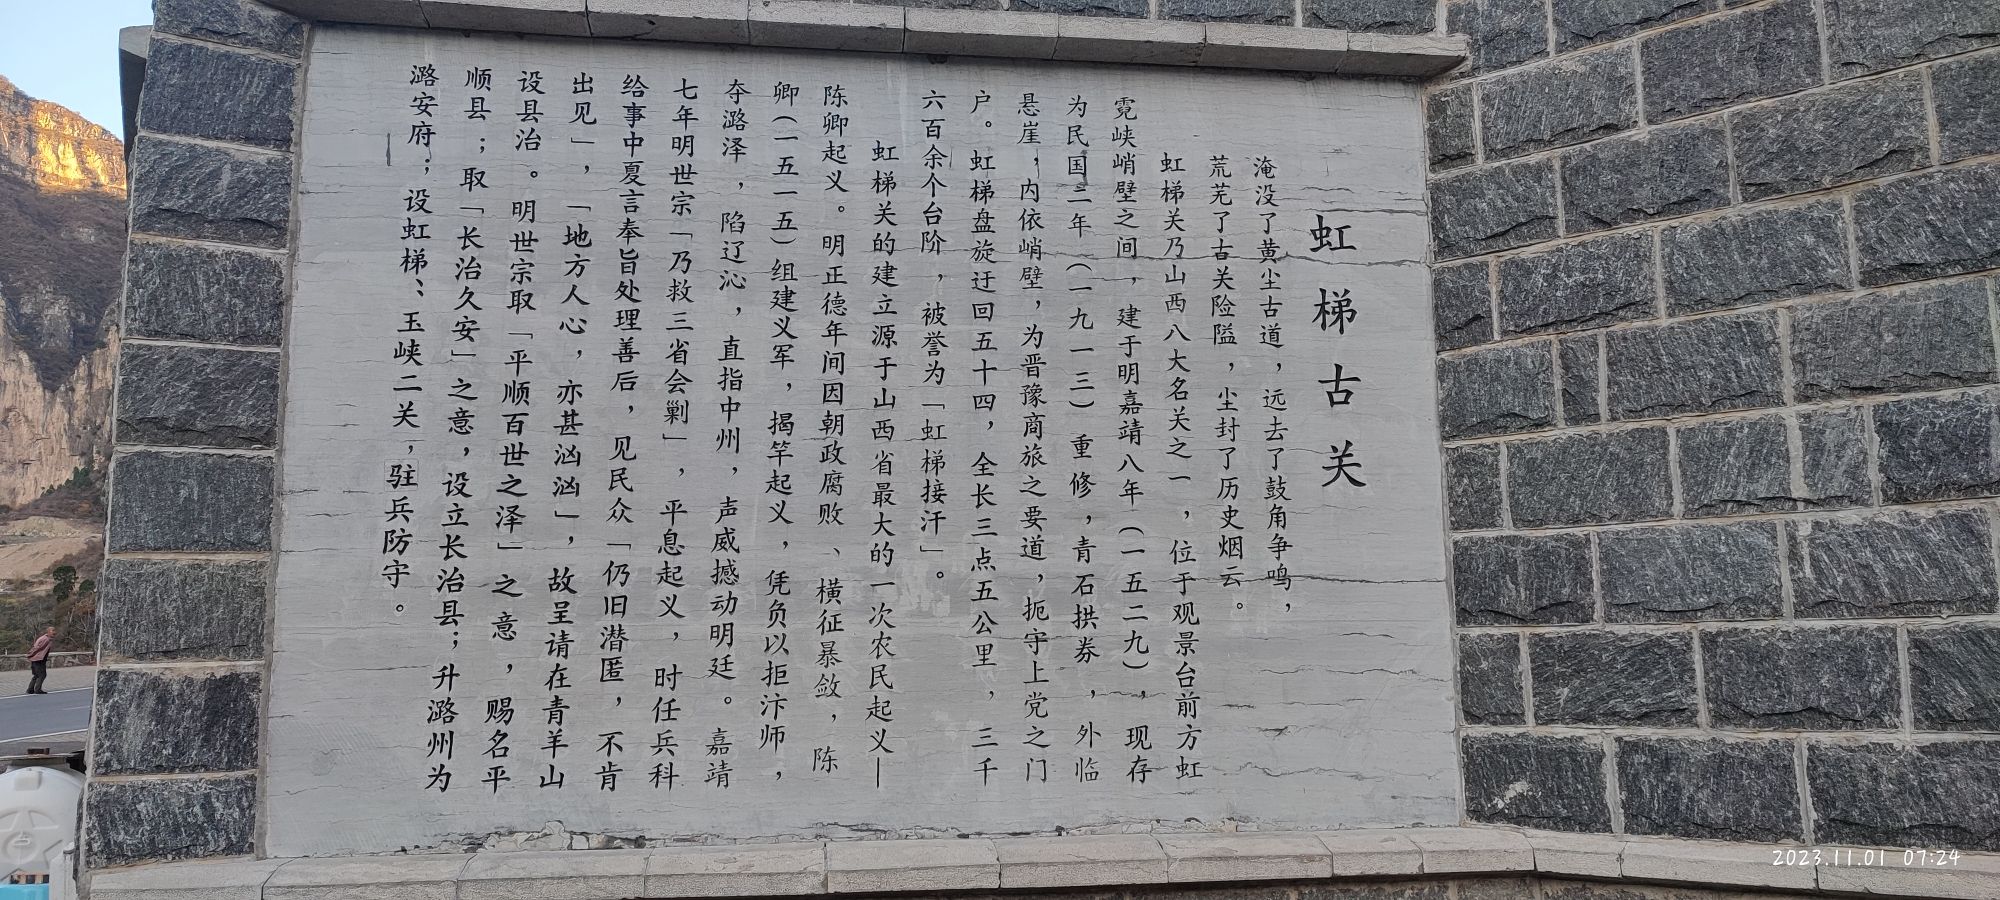 虹梯古关
淹没了黄尘古道，远去了鼓角争鸣，
荒芜了古关险隘，尘封了历史烟云。
虹梯关乃山西八大名关之一，位于观景台前方虹
霓峡峭壁之间，建于明嘉靖八年（一五二九），现存
为民国二年（一九一三）重修，青石拱券，外临
悬崖，内依峭壁，为晋豫商旅之要道，扼守上党之门
户。虹梯盘旋迂回五十四，全长三点五公里，三千
六百余个台阶，被誉为「虹梯接汗」。
虹梯关的建立源于山西省最大的一次农民起义—
陈卿起义。明正德年间因朝政腐败、横征暴敛，陈
卿（一五一五）组建义军，揭竿起义，凭负以拒汴师，
夺潞泽，陷辽沁，直指中州，声威撼动明廷。嘉靖
七年明世宗「乃救三省会剿」，平息起义，时任兵科
给事中夏言奉旨处理善后，见民众「仍旧潜匿，不肯
出见」，「地方人心，亦甚汹汹」，故呈请在青羊山
设县治。明世宗取「平顺百世之泽」之意，赐名平
顺县；取「长治久安」之意，设立长治县；升潞州为
潞安府；设虹梯、玉峡二关，驻兵防守。
2023.11.01 07:24